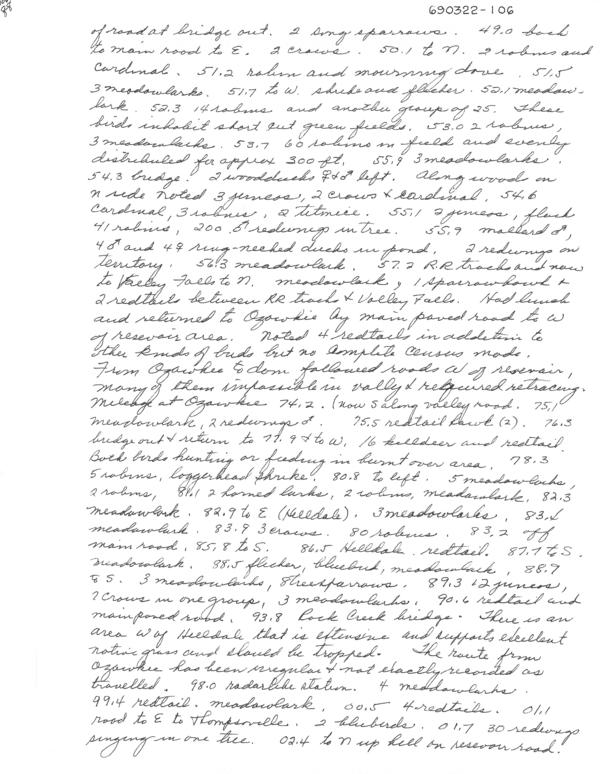 690322-106
of road at bridge out. 2 song sparrows. 49.0 back
to main road to E. 2 crows. 50.1 to N. 2 robins and
Cardinal. 51.2 robin and mourning dove. 51.5
3 meadowlarks. 51.7 to W. shrike and flicker. 52.1 meadow-
lark. 52.3 14 robins and another group of 25. These
birds inhabit short cut green fields. 53.0 2 robins,
3 meadowlarks. 53.7 60 robins in field and evenly
distributed for approx 300 ft. 55.9 3 meadowlarks.
54.3 bridge. 2 woodducks ♀ & ♂ left. Along wood on
N side noted 3 juncos, 2 crows & cardinal. 54.6
Cardinal, 3 robins, 2 titmice. 55.1 2 juncos, flock
41 robins, 200 ♂ redwings in tree. 55.9 mallard ♂,
4♂ and 4♀ ring-necked ducks in pond. 2 redwings on
territory. 56.3 meadowlark. 57.2 R.R. track and now
to Valley Falls to N. meadowlark, 1 Sparrowhawk &
2 redtails between RR track & Valley Falls. Had lunch
and returned to Ozawkie by main paved road to W
of resevoir area. Noted 4 redtails in addition to
other kinds of birds but no complete census made.
From Ozawkie to dam followed roads W of resevoir,
many of them impossible in vally & required retracing.
Mileage at Ozawkie 74.2. (now S along valley road. 75.1
meadowlark, 2 redwings ♂. 75.5 redtail hawk (2). 76.3
bridge out & return to 77.9 & to W, 16 killdeer and redtail.
Both birds hunting or feeding in burnt over area. 78.3
5 robins, loggerhead shrike. 80.8 to left. 5 meadowlarks,
2 robins, 81.1 2 horned larks, 2 robins, meadowlark. 82.3
meadowlark. 82.9 to E (Helldale). 3 meadowlarks, 83.2
meadowlark. 83.9 3 crows. 80 robins. 83.2 off
main road. 85.8 to S. 86.5 Helldale. redtail. 87.7 to S.
meadowlark. 88.5 flicker, bluebird, meadowlark, 88.7
& S. 3 meadowlarks, 8 treesparrows. 89.3 12 juncos,
7 crows in one group, 3 meadowlarks. 90.6 redtail and
main paved road. 93.8 Rock Creek bridge. There is an
area W of Helldale that is extensive and supports excellent
native grass and should be trapped. The route from
Ozawkie has been irregular & not exactly recorded as
travelled. 98.0 radarlike station. 4 meadowlarks.
99.4 redtail. meadowlark. 00.5 4 redtails. 01.1
road to E to Thompsonville. 2 bluebirds. 01.7 30 redwings
singing in one tree. 02.4 to N up hill on resevoir road.